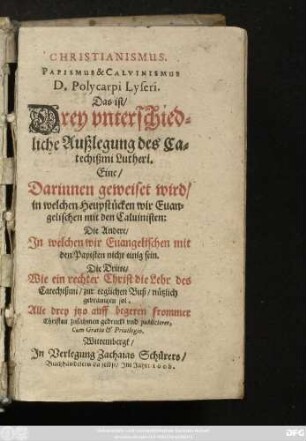 CHRISTIANISMUS.
PAPISMUS & CALVINISMUS
D. Polycarpi Lyseri.
Das ist/
Drey vnterschied-
liche Außlegung des Ca-
techißmi Lutheri.
Eine/
Darinnen geweiset wird/
in welchen Heuptstücken wir Euan-
gelischen mit den Caluinisten:
Die Andere/
In welchen wir Euangelischen mit
den Papisten nicht einig sein.
Die Dritte/
Wie ein rechter Christ die Lehr des
Catechißmi/ zur teglichen Buß/ nützlich
gebrauchen sol.
Alle drey jtzo auff begeren frommer
Christen zusammen gedruckt vnd
Cum Gratia & Privilegio.
Wittemberg/
In Verlegung Zacharias Schürers/
Im Jahr